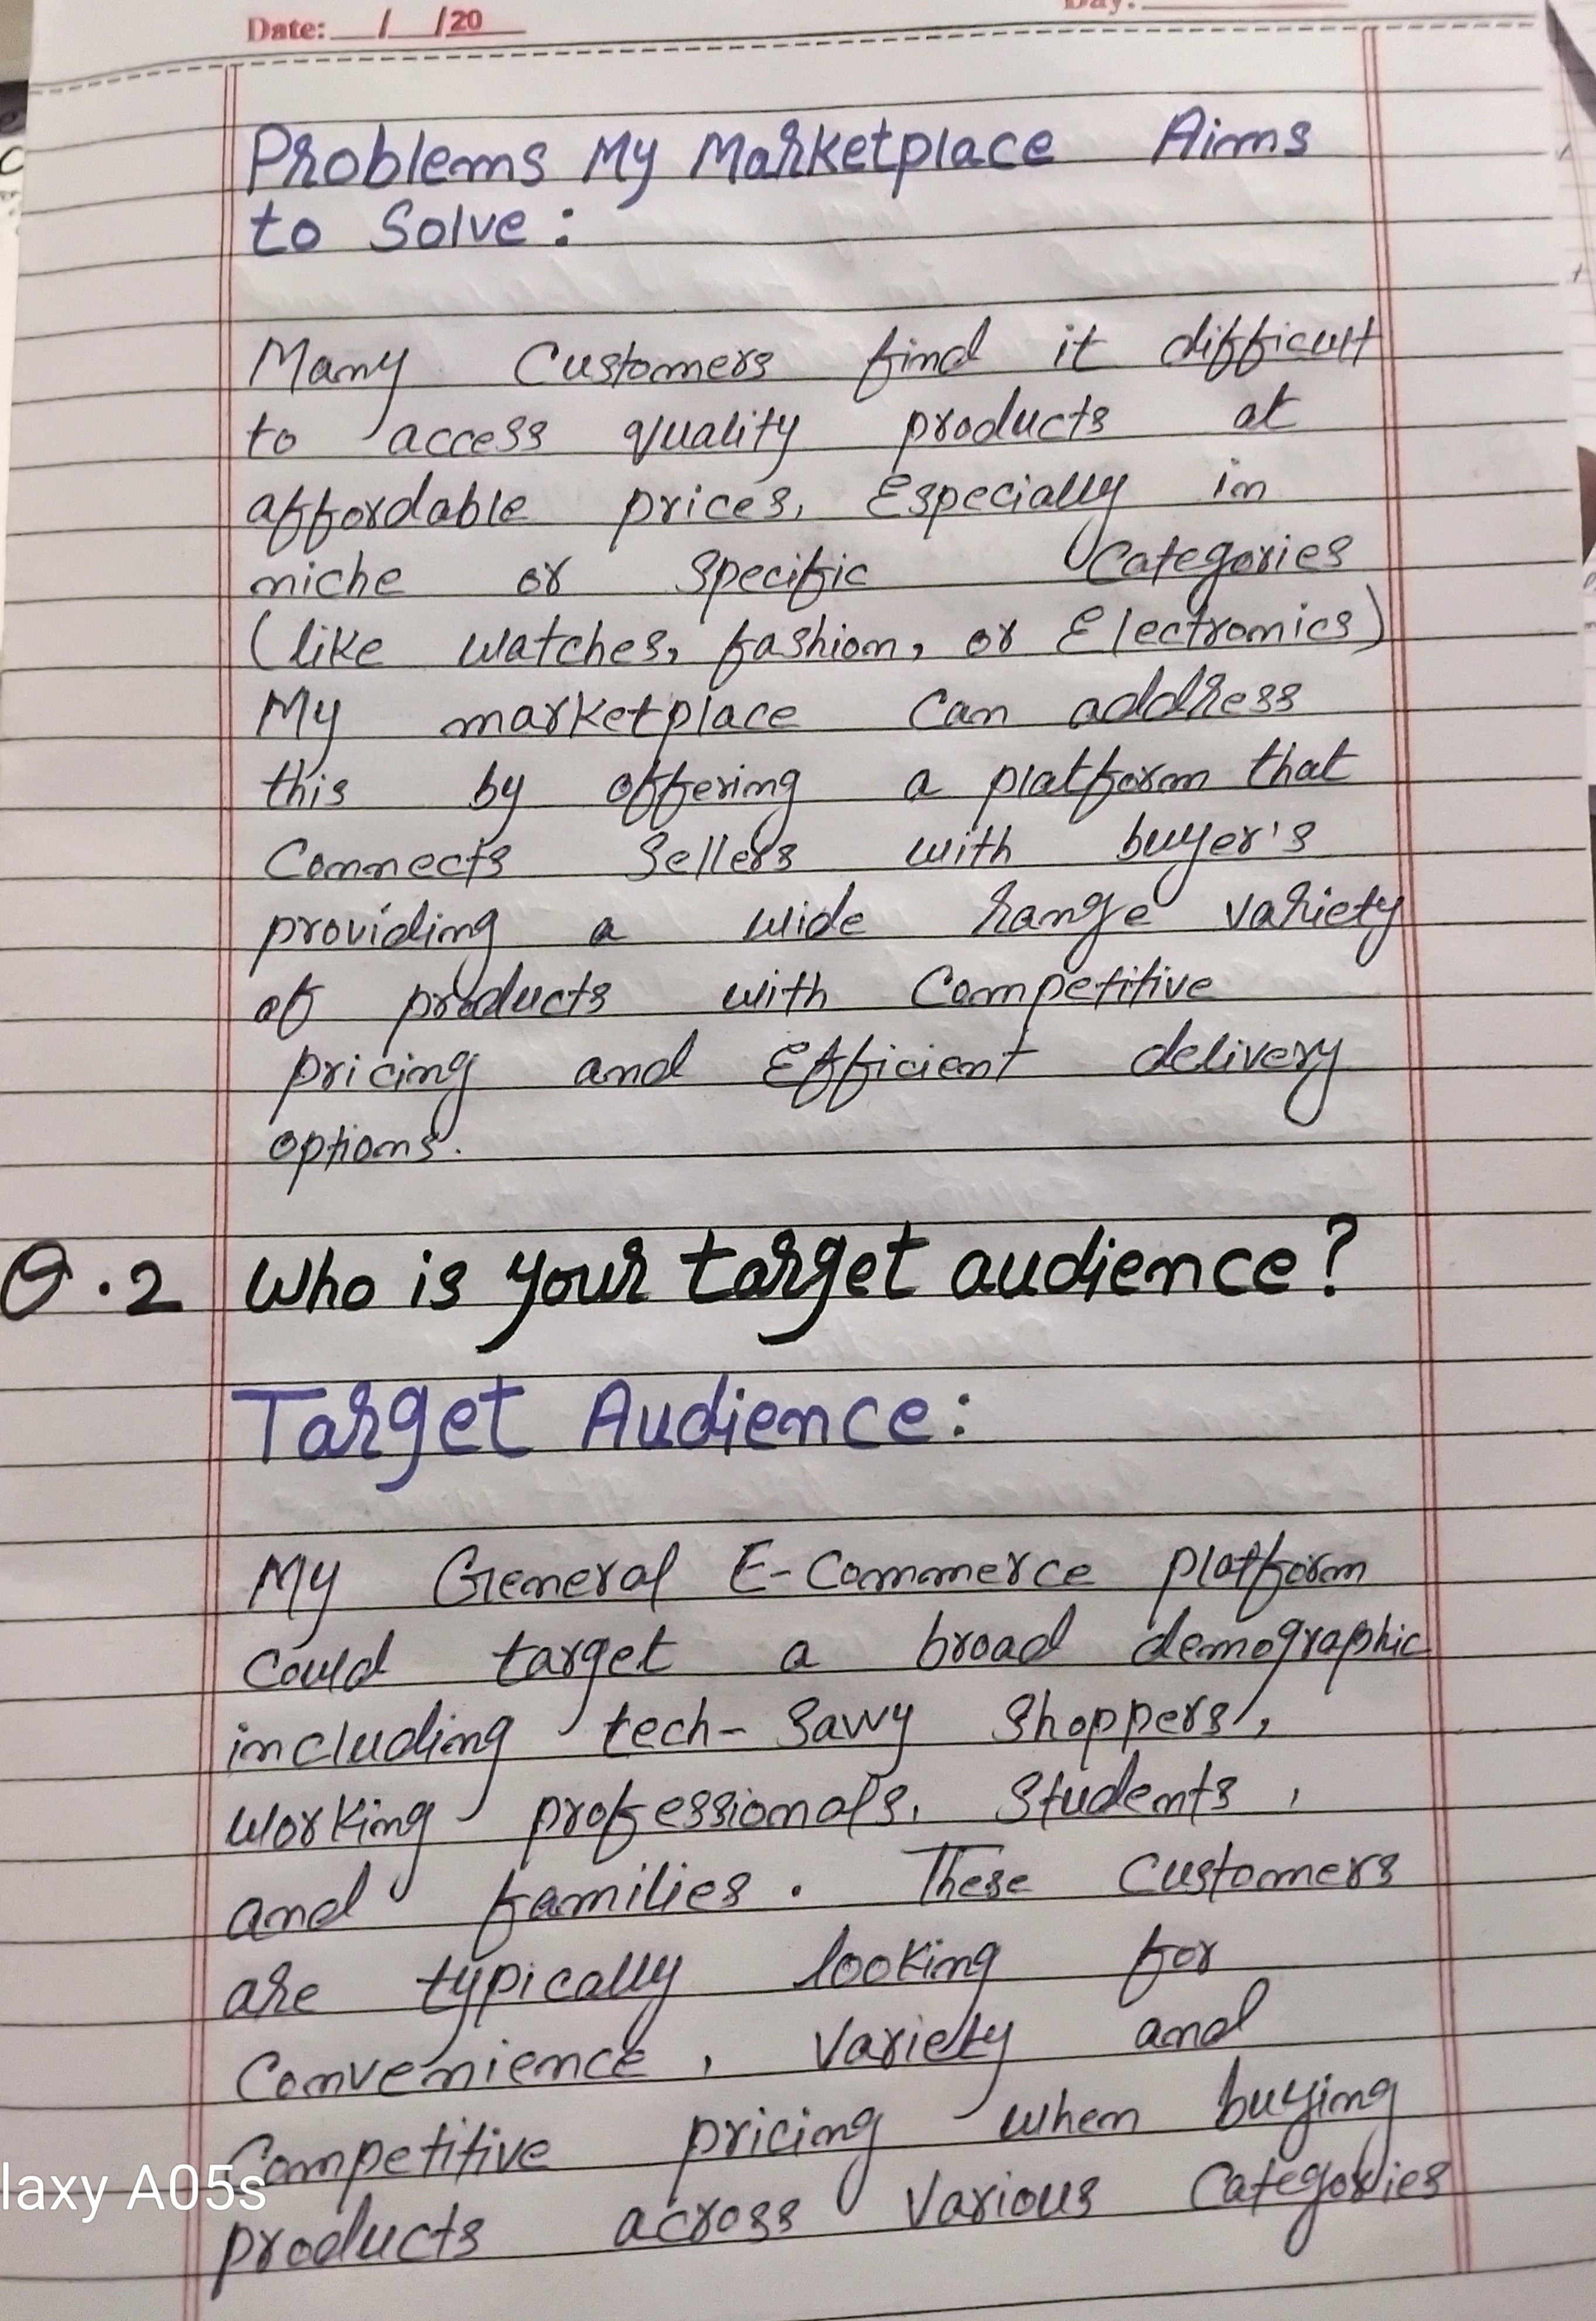 Date: __/__/20__
Day:
Problems My Marketplace Aims
to Solve :
Many Customers find it difficult
to access quality products at
affordable prices, Especially in
niche or Specific Categories
(like watches, fashion, or Electronics)
My marketplace Can address
this by offering a platform that
Connects Sellers with buyer's
providing a wide range variety
of products with Competitive
pricing and Efficient delivery
options.
Q.2 Who is your target audience?
Target Audience:
My General E-Commerce platform
Could target a broad demographic
including tech-Savvy Shoppers,
working professionals, Students,
and families. These Customers
are typically looking for
Convenience, Variety and
Competitive pricing when buying
products across Various Categories
laxy A05s